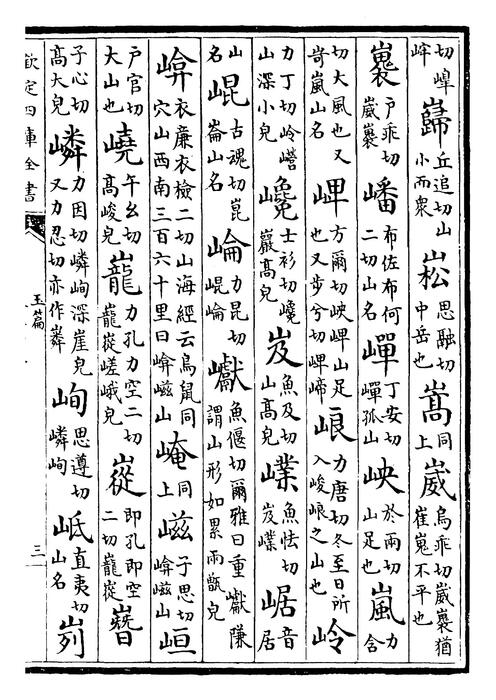 切嶂崪巋丘追切山小而衆崧思融切中岳也嵩同上崴烏乖切崴裹猶崔嵬不平也
户乖切崴裹嶓布佐布何二切山名丁安切孤山岟於兩切山足也嵐力含
切大風也又岢嵐山名崥方爾切岟崥山足也又步兮切崥崹㟍力唐切冬至日所入峻㟍之山也岭
力丁切岭巆山深小皃巉士衫切巉巖髙皃岌魚及切山髙皃嶫魚怯切岌嶫崌音居
山名崐古魂切崑崙山名崘力昆切崐崘巘魚偃切爾雅曰重巘隒謂山形如累兩甑皃
衣廉衣檢二切山海經云鳥鼠同穴山西南三百六十里曰嵫山崦同上嵫子思切嵫山峘
户官切大山也嶢午幺切髙峻皃巃力孔力空二切巃嵸嵯峨皃嵸即孔即空二切巃嵸嶜
子心切髙大皃嶙力因切嶙峋深崖皃又力忍切亦作峋思遵切嶙峋岻直夷切山名峢
欽定四庫全書 玉篇 三